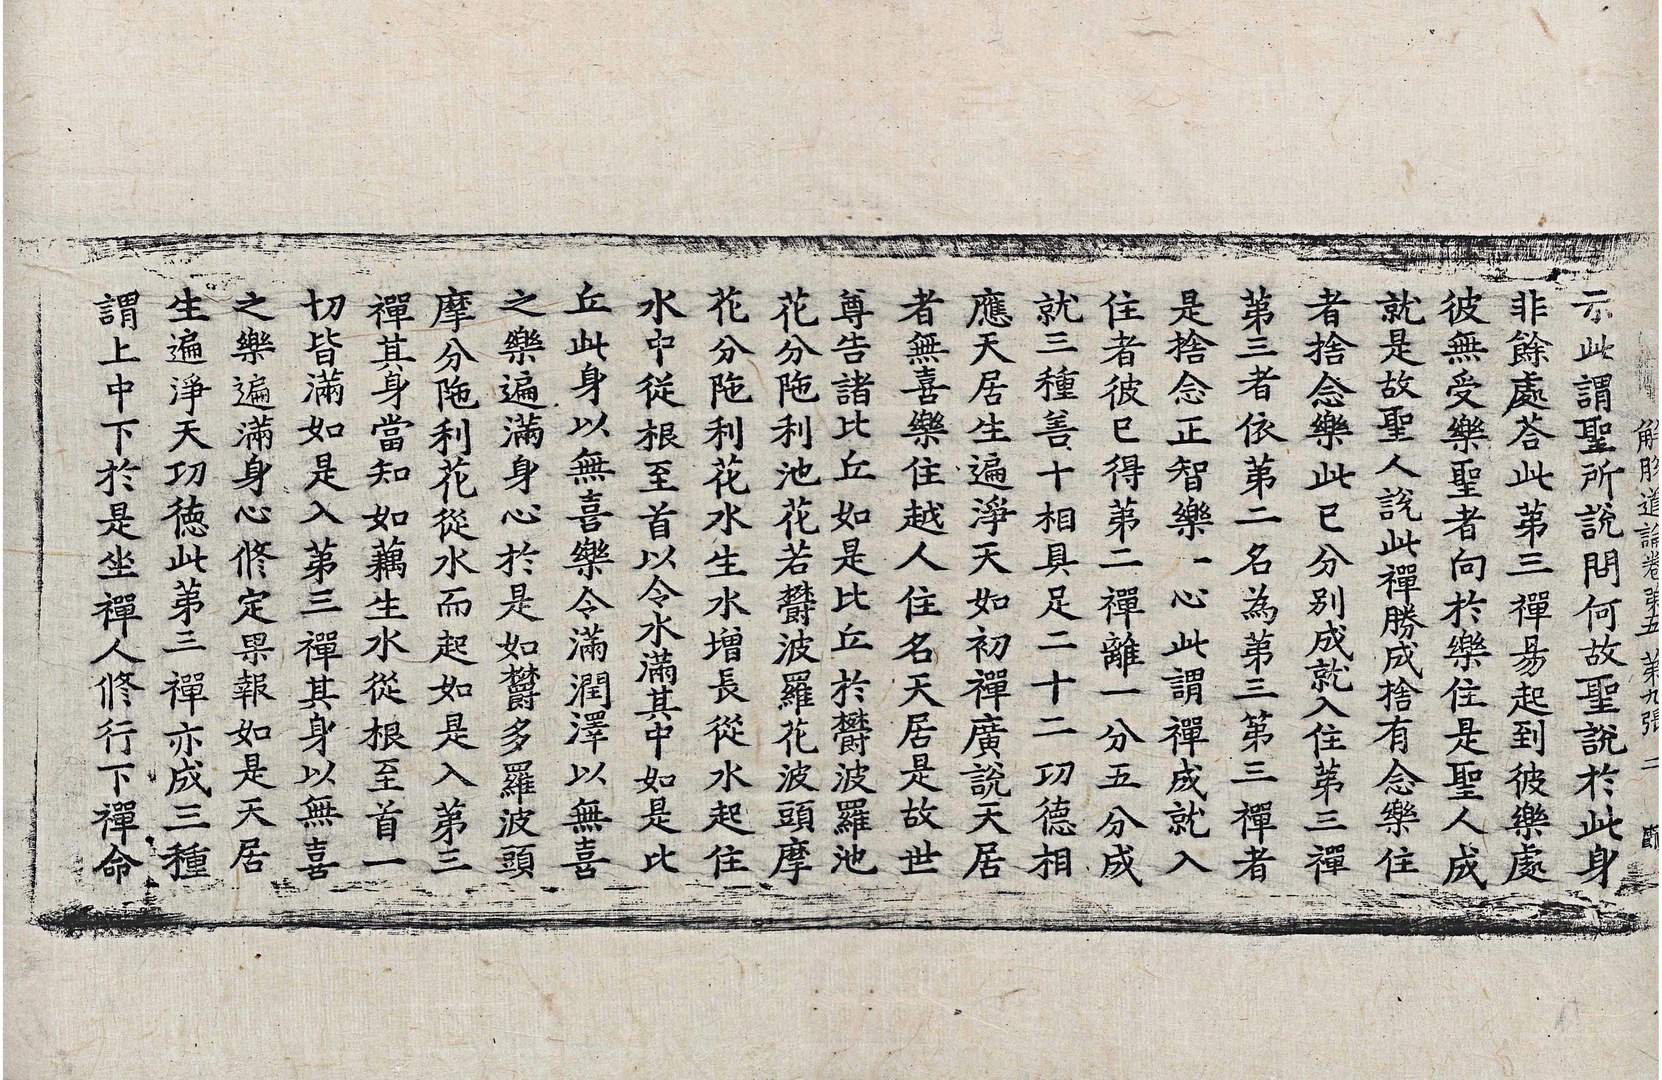 解脫道論卷第五 第九張 二
示此謂聖所說問何故聖說於此身
非餘處荅此第三禪昜起到彼樂處
彼無受樂聖者向於樂住是聖人成
就是故聖人說此禪勝成捨有念樂住
者捨念樂此已分别成就入住第三禪
第三者依第二名為第三第三禪者
是捨念正智樂一心此謂禪成就入
住者彼已得第二禪離一分五分成
就三種善十相具足二十二功德相
應天居生遍淨天如初禪廣說天居
者無喜樂住越人住名天居是故世
尊告諸比丘如是比丘於欝波羅池
花分陁利池花若欝波羅花波頭摩
花分陁利花水生水增長從水起住
水中從根至首以令水滿其中如是比
丘此身以無喜樂令滿潤澤以無喜
之樂遍滿身心於是如欝多羅波頭
摩分陁利花從水而起如是入第三
禪其身當知如藕生水從根至首一
切皆滿如是入第三禪其身以無喜
之樂遍滿身心修定果報如是天居
生遍淨天功德此第三禪亦成三種
謂上中下於是坐禪人修行下禪命